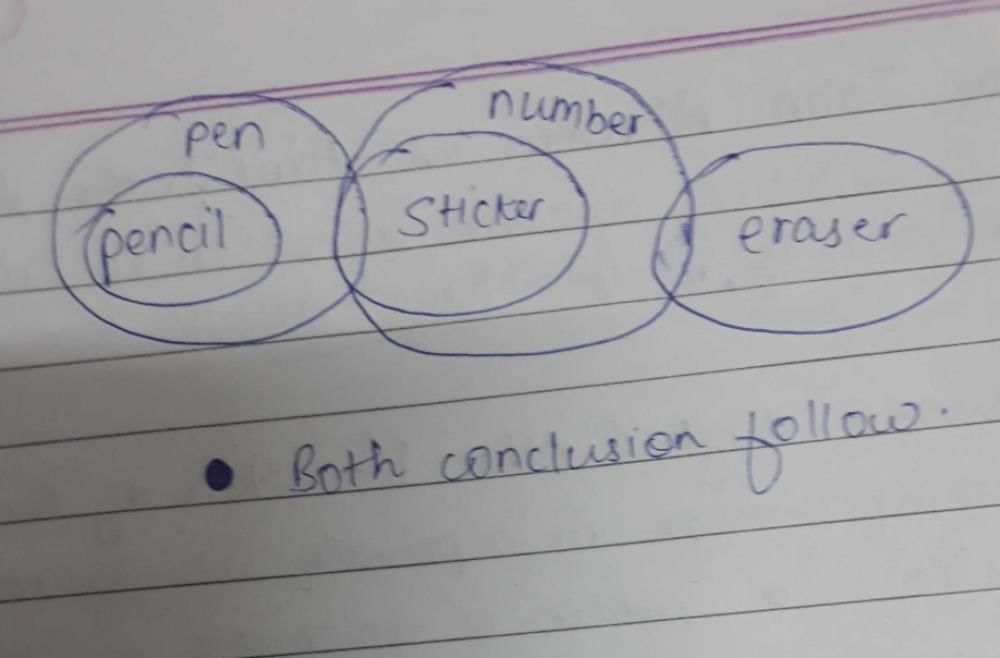 pen
number
pencil
Sticker
eraser
• Both conclusion follow.